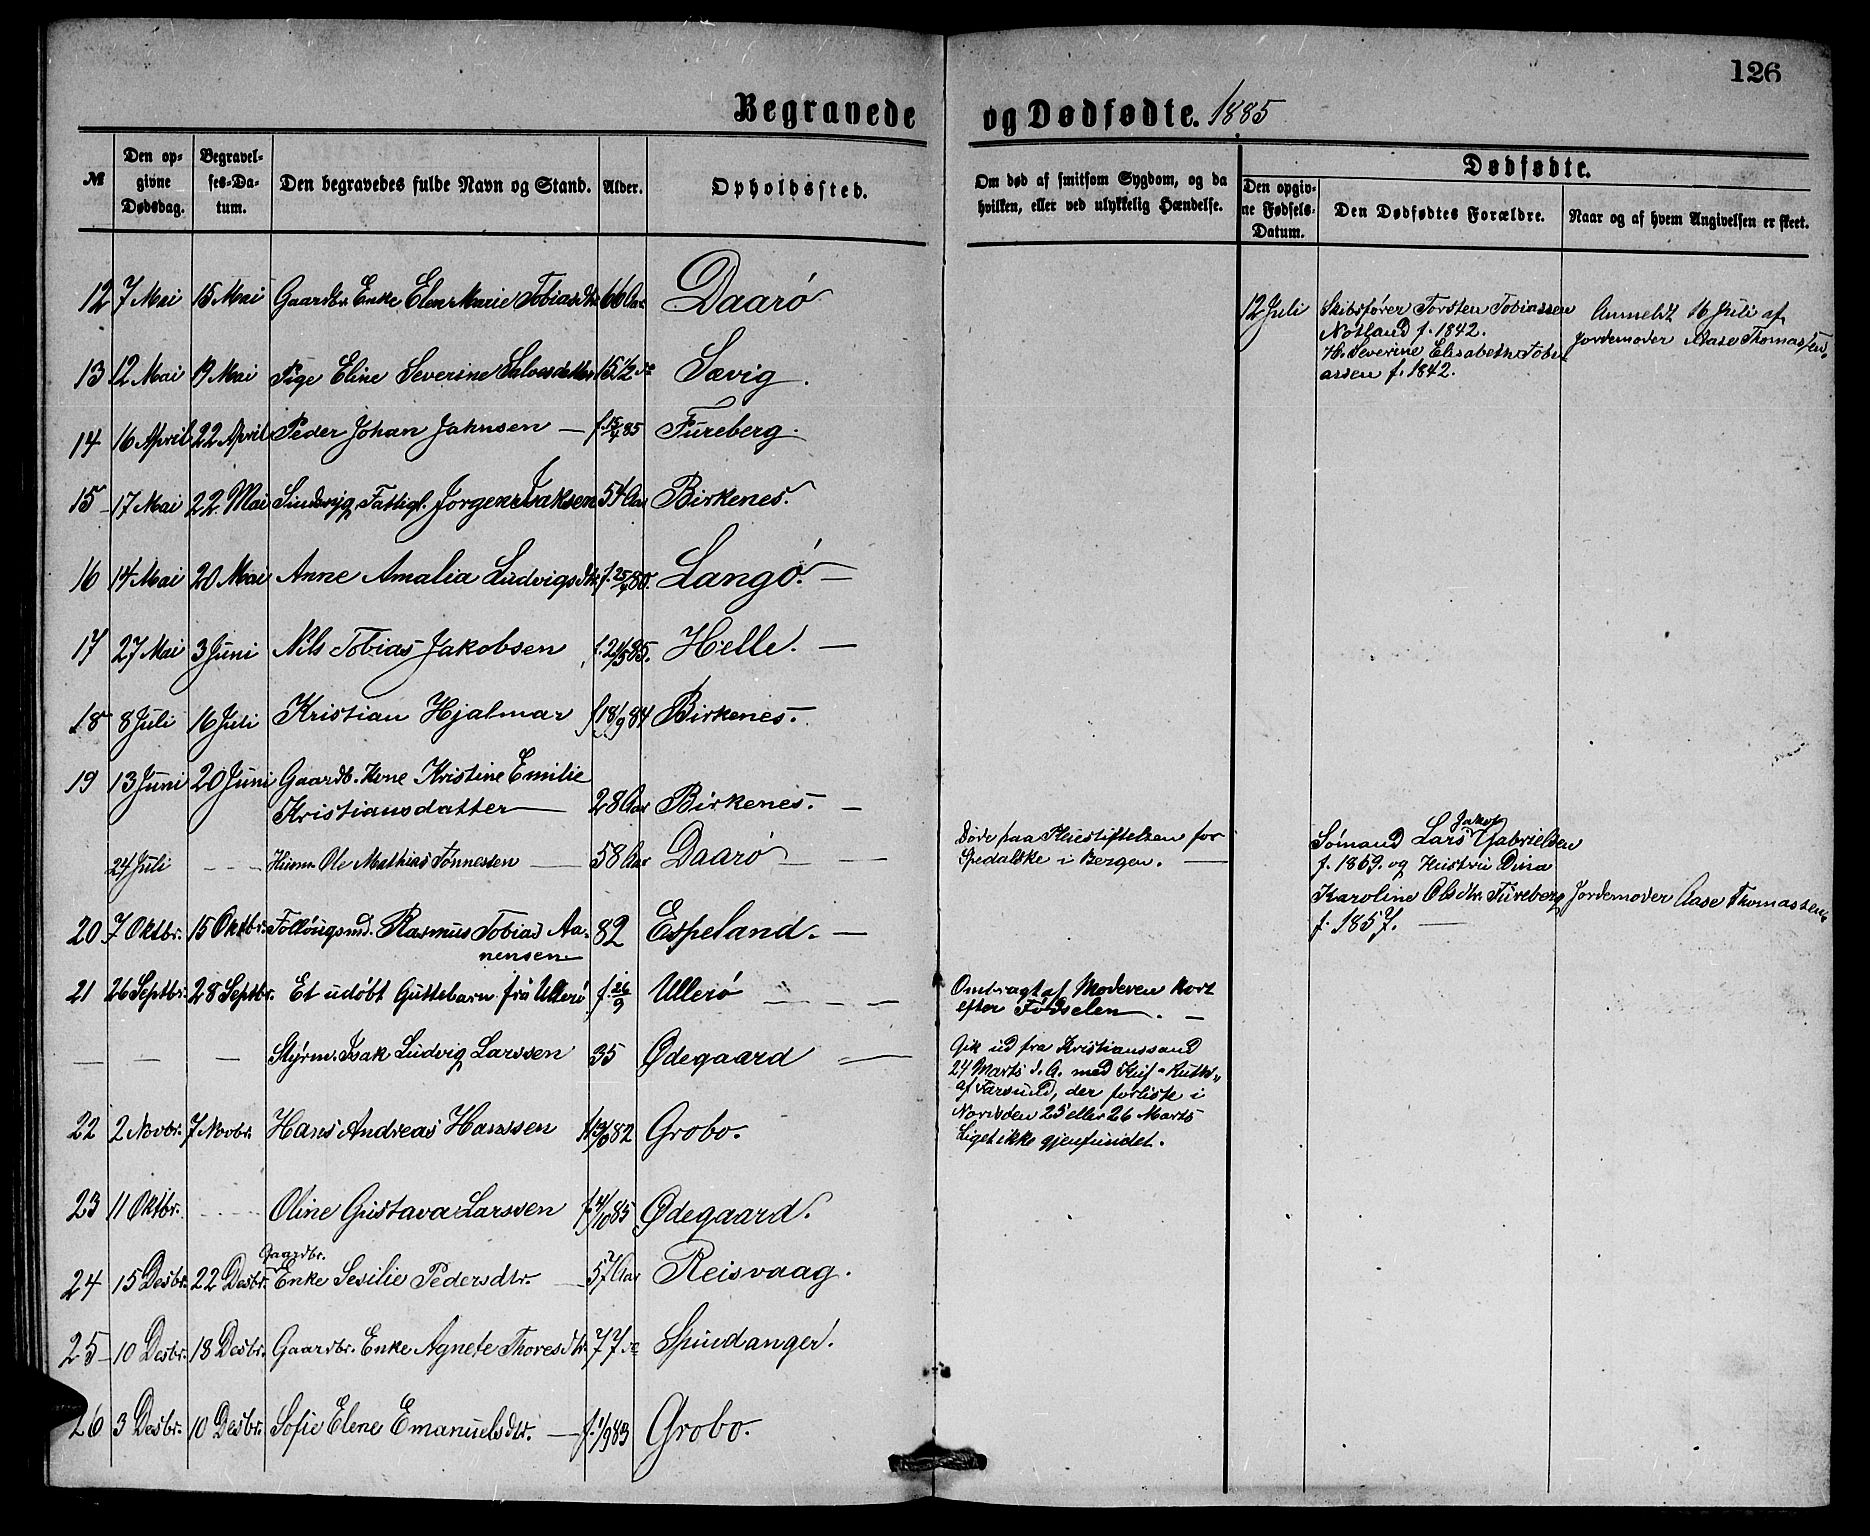 126
Begravede og Dødfødte. 1885
№ Den opgivne Dødsdag. Begravelses-Datum. Den begravedes fulde Navn og Stand. Alder. Opholdssted. Om død af smitsom Sygdom, og da hvilken, eller ved ulykkelig Hændelse.
Dødfødte.
Den opgivne Fødsels-Datum. Den Dødfødtes Forældre. Naar og af hvem Angivelsen er skeet.
12 7 Mai 15 Mai Gaardbr. Enke Elen Marie Tobiasdtr. 66 Aar Daarö
13 12 Mai 19 Mai Pige Eline Severine Salvesdatter 15 1/2 do Sævig.
14 16 April 22 April Peder Johan Jahnsen — f. 15/4 85 Fureberg.
15 17 Mai 22 Mai Sindsvg. Fattigl. Jorgen Isaksen 54 Aar Birkenes.
16 14 Mai 20 Mai Anne Amalia Ludvigsdtr. f. 25/4 80. Langö. —
17 27 Mai 3 Juni Nils Tobias Jakobsen f. 21/5 85. Helle. —
18 8 Juli 16 Juli Kristian Hjalmar f 18/9 84 Birkenes.
19 13 Juni 20 Juni Gaardb. Kone Kristine Emilie
Kristiansdatter — 28 Aar Birkenes. —
24 Juli — Husm. Ole Mathias Tönnessen — 58 Aar Daarö — —
20 7 Oktbr. 15 Oktbr. Föllöugsmd. Rasmus Tobias Aa-
nensen 82 Espeland. —
21 26 Septbr. 28 Septbr. Et udöbt Guttebarn frå Ullerö f. 26/9 Ullerö — — —
— — — Styrm. Isak Ludvig Larssen 35 Ødegaard —
22 2 Novbr. 7 Novbr. Hans Andreas Hanssen 82 Grobo.
23 11 Oktbr. Oline Gustava Larssen f. 4/10 85 Ødegaard.
Gaardbr.
24 15 Desbr. 22 Desbr. Enke Sesilie Pedersdtr. — 57 Aar Reisvaag.
25 10 Desbr. 18 Desbr. Gaardbr. Enke Agnete Thoresdtr. 77 do Spindanger.
26 3 Desbr. 10 Desbr. Sofie Elene Emanuelsdtr. — f. 1/9 83 Grobo.
Döde paa Pleiestiftelsen for
Spedalske i Bergen. —
Ombragt af Moderen kort
efter Födselen. —
Gik ud fra Kristianssand
24 Marts d. A. med Kuf "Ruth"
af Farsund, der forliste i
Nordsöen 25 eller 26 Marts
Liget ikke gjenfundet.
12 Juli Skibsförer Torsten Tobiassen
Nötland f. 1842.
H. Severine Elisabeth Tobi
assen f. 1842.
Anmeldt 16 Juli af
Jordemoder Aase Thomassen.
Sömand Lars Jakob Gabrielsen
f. 1859. og Hustru Dina
Karoline Olsdtr. Fureberg
f. 1857. —
Jordemoder Aase Thomassen